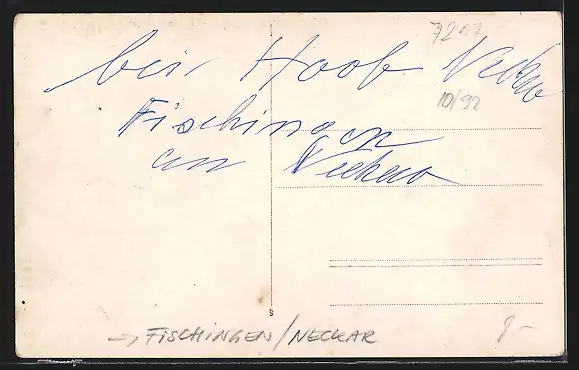 7242
bei Hoof Neckar
10/92
Fischingen
am Neckar
→ FISCHINGEN/NECKAR
8.-